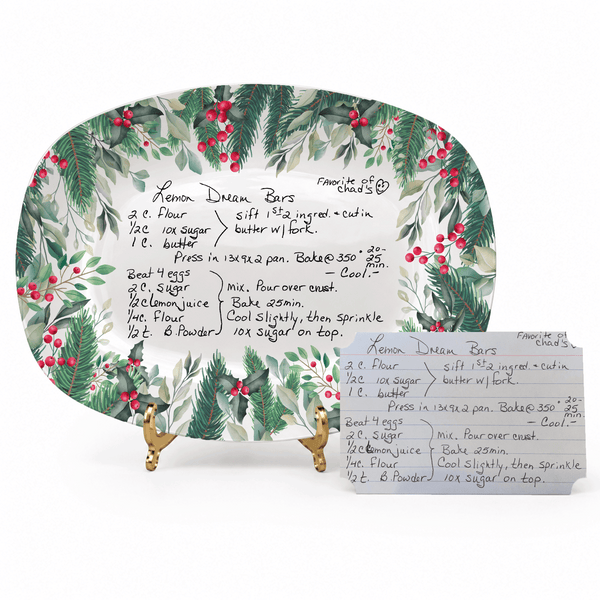 Lemon Dream Bars
Favorite of
chad's
2 C. Flour sift 1st 2 ingred. + cut in
1/2C 10x sugar butter w/ fork.
1 C. butter
Press in 13x9x2 pan. Bake @ 350° 20-
25
min.
Beat 4 eggs - Cool. -
2 C. Sugar Mix. Pour over crust.
1/2 C lemon juice Bake 25min.
1/4C. Flour Cool slightly, then sprinkle
1/2 t. B. Powder 10x sugar on top.
Favorite of
chad's
Lemon Dream Bars
2 C. Flour sift 1st 2 ingred. + cut in
1/2C 10x sugar butter w/ fork.
1 C. butter
Press in 13x9x2 pan. Bake @ 350° 20-
25
min.
Beat 4 eggs - Cool. -
2 C. Sugar Mix. Pour over crust.
1/2 C lemon juice Bake 25min.
1/4C. Flour Cool slightly, then sprinkle
1/2 t. B. Powder 10x sugar on top.